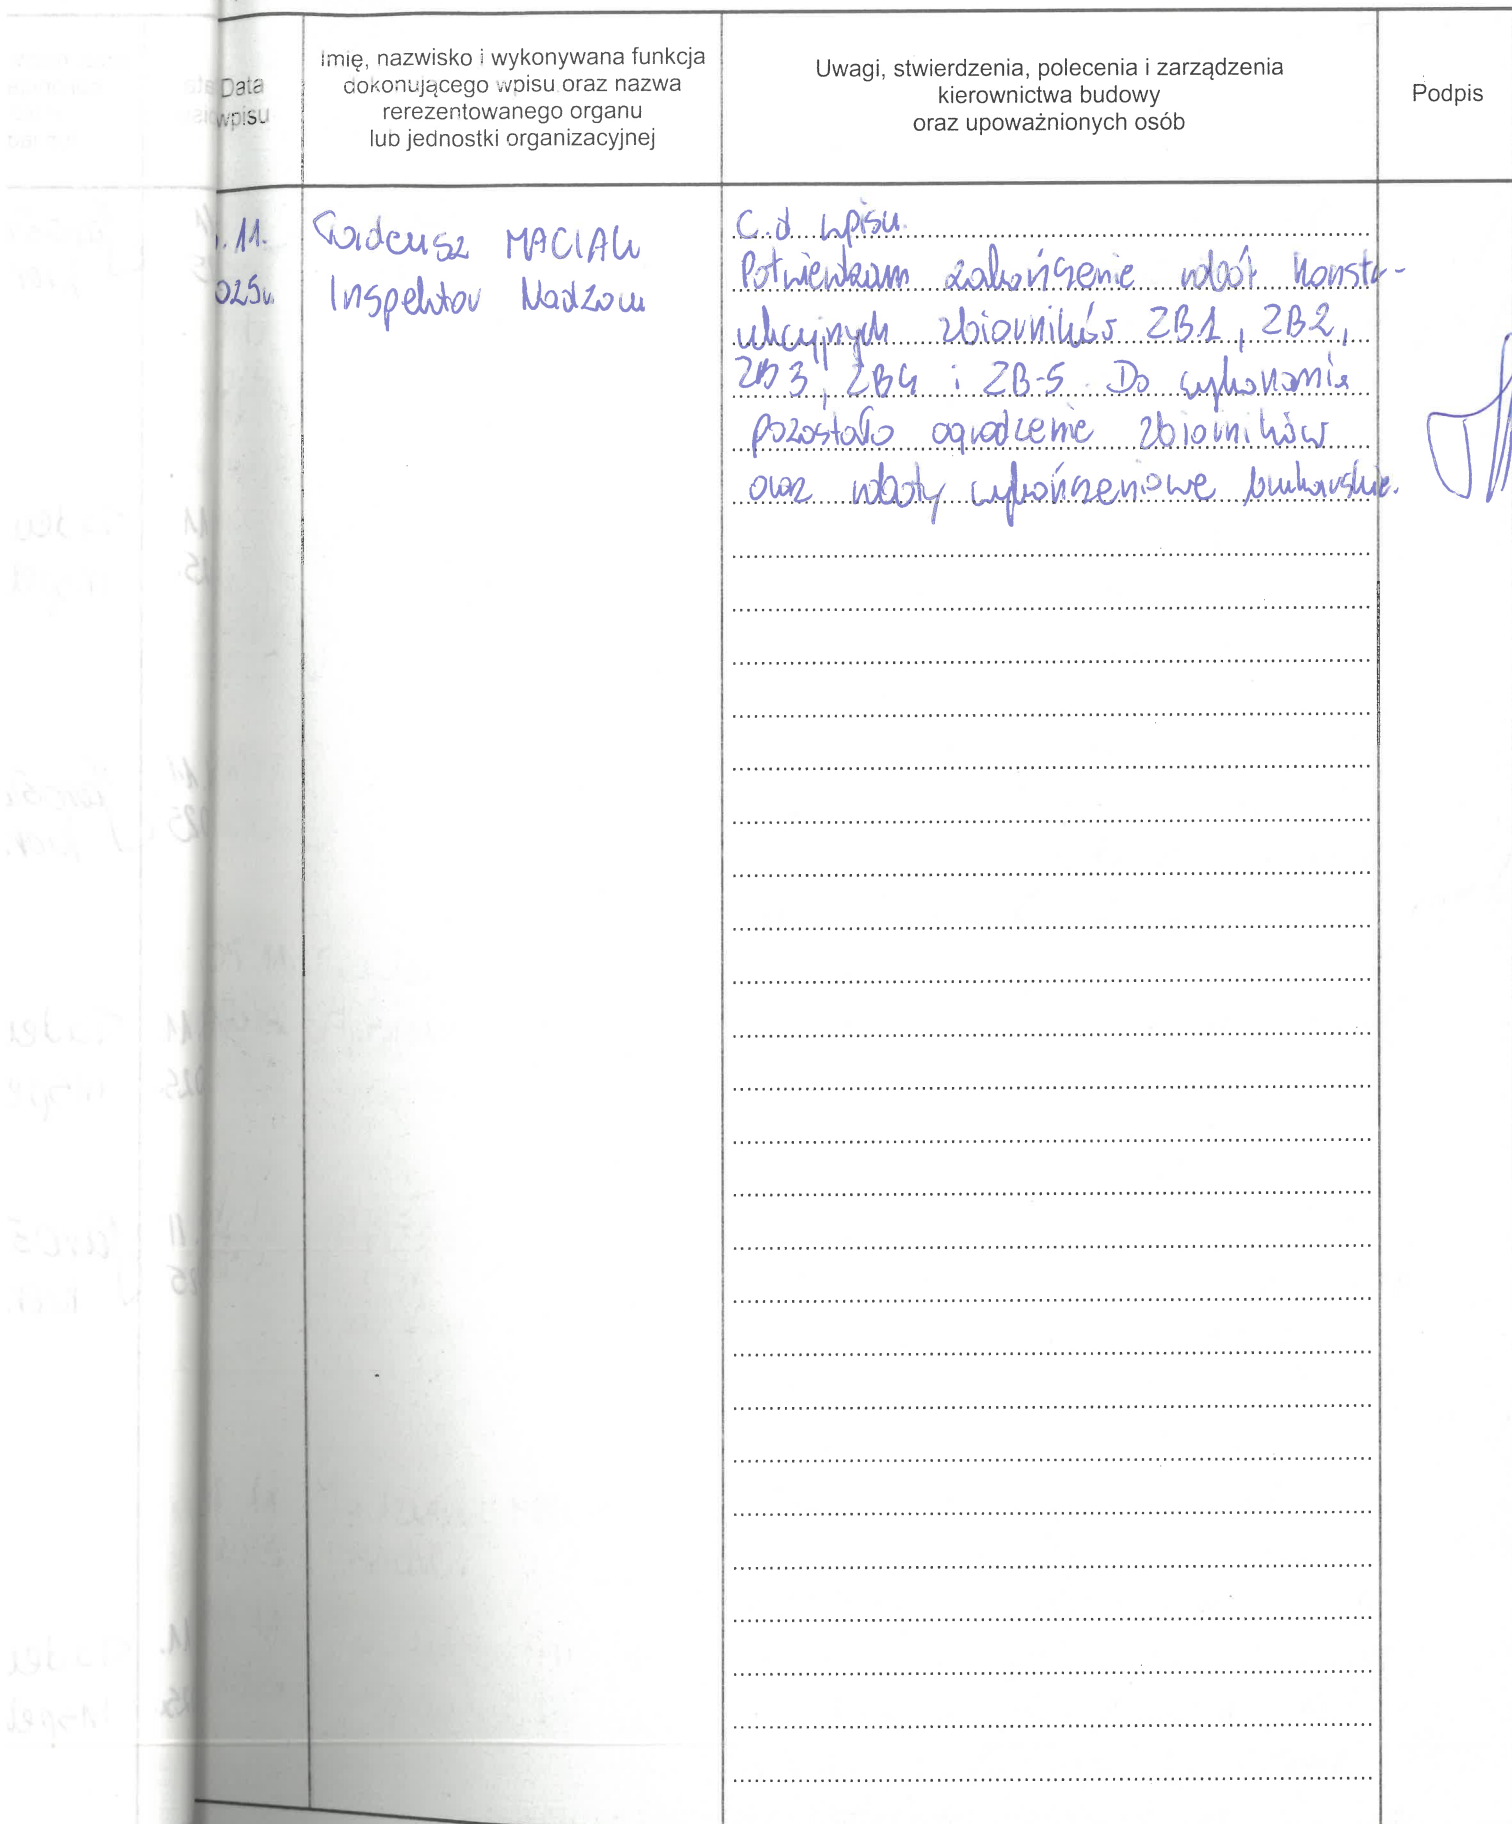 Data
wpisu
Imię, nazwisko i wykonywana funkcja
dokonującego wpisu oraz nazwa
rerezentowanego organu
lub jednostki organizacyjnej
Uwagi, stwierdzenia, polecenia i zarządzenia
kierownictwa budowy
oraz upoważnionych osób
Podpis
. 11.
025r.
Tadeusz MACIAK
Inspektor Nadzoru
C.d wpisu.
Potwierdzam zakończenie robót konstr-
ukcyjnych zbiorników ZB1, ZB2,
ZB3, ZB4 i ZB-5. Do wykonania
pozostało ogrodzenie zbiorników
oraz roboty wykończeniowe brukarskie.